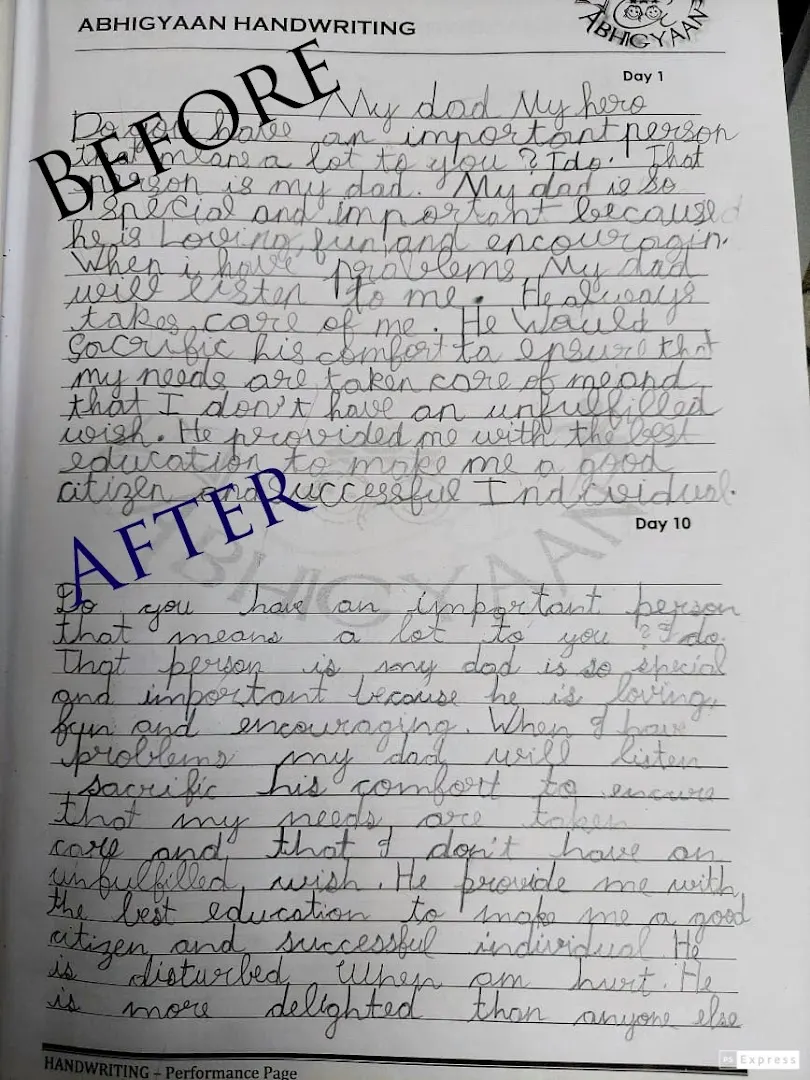 ABHIGYAAN HANDWRITING
ABHIGYAAN
Day 1
BEFORE
My dad My hero
Do you have an important person
that means a lot to you ? I do. That
person is my dad. My dad is so
special and important because
he is Loving, fun, and encouragin.
When i have problems My dad
will listen to me. He always
takes care of me. He Would
Sacrific his comfort to ensure that
my needs are taken care of me and
that I don't have an unfulfilled
wish. He provided me with the best
education to make me a good
citizen and successful Individual.
AFTER
Day 10
ABHIGYAAN
Do you have an important person
that means a lot to you ? I do.
That person is my dad is so special
and important because he is loving,
fun and encouraging. When I have
problems my dad will listen
sacrific his comfort to encure
that my needs are taken
care and that I don't have an
unfulfilled wish. He provide me with
the best education to make me a good
citizen and successful individual. He
is disturbed When am hurt. He
is more delighted than anyone else
HANDWRITING – Performance Page
PS Express